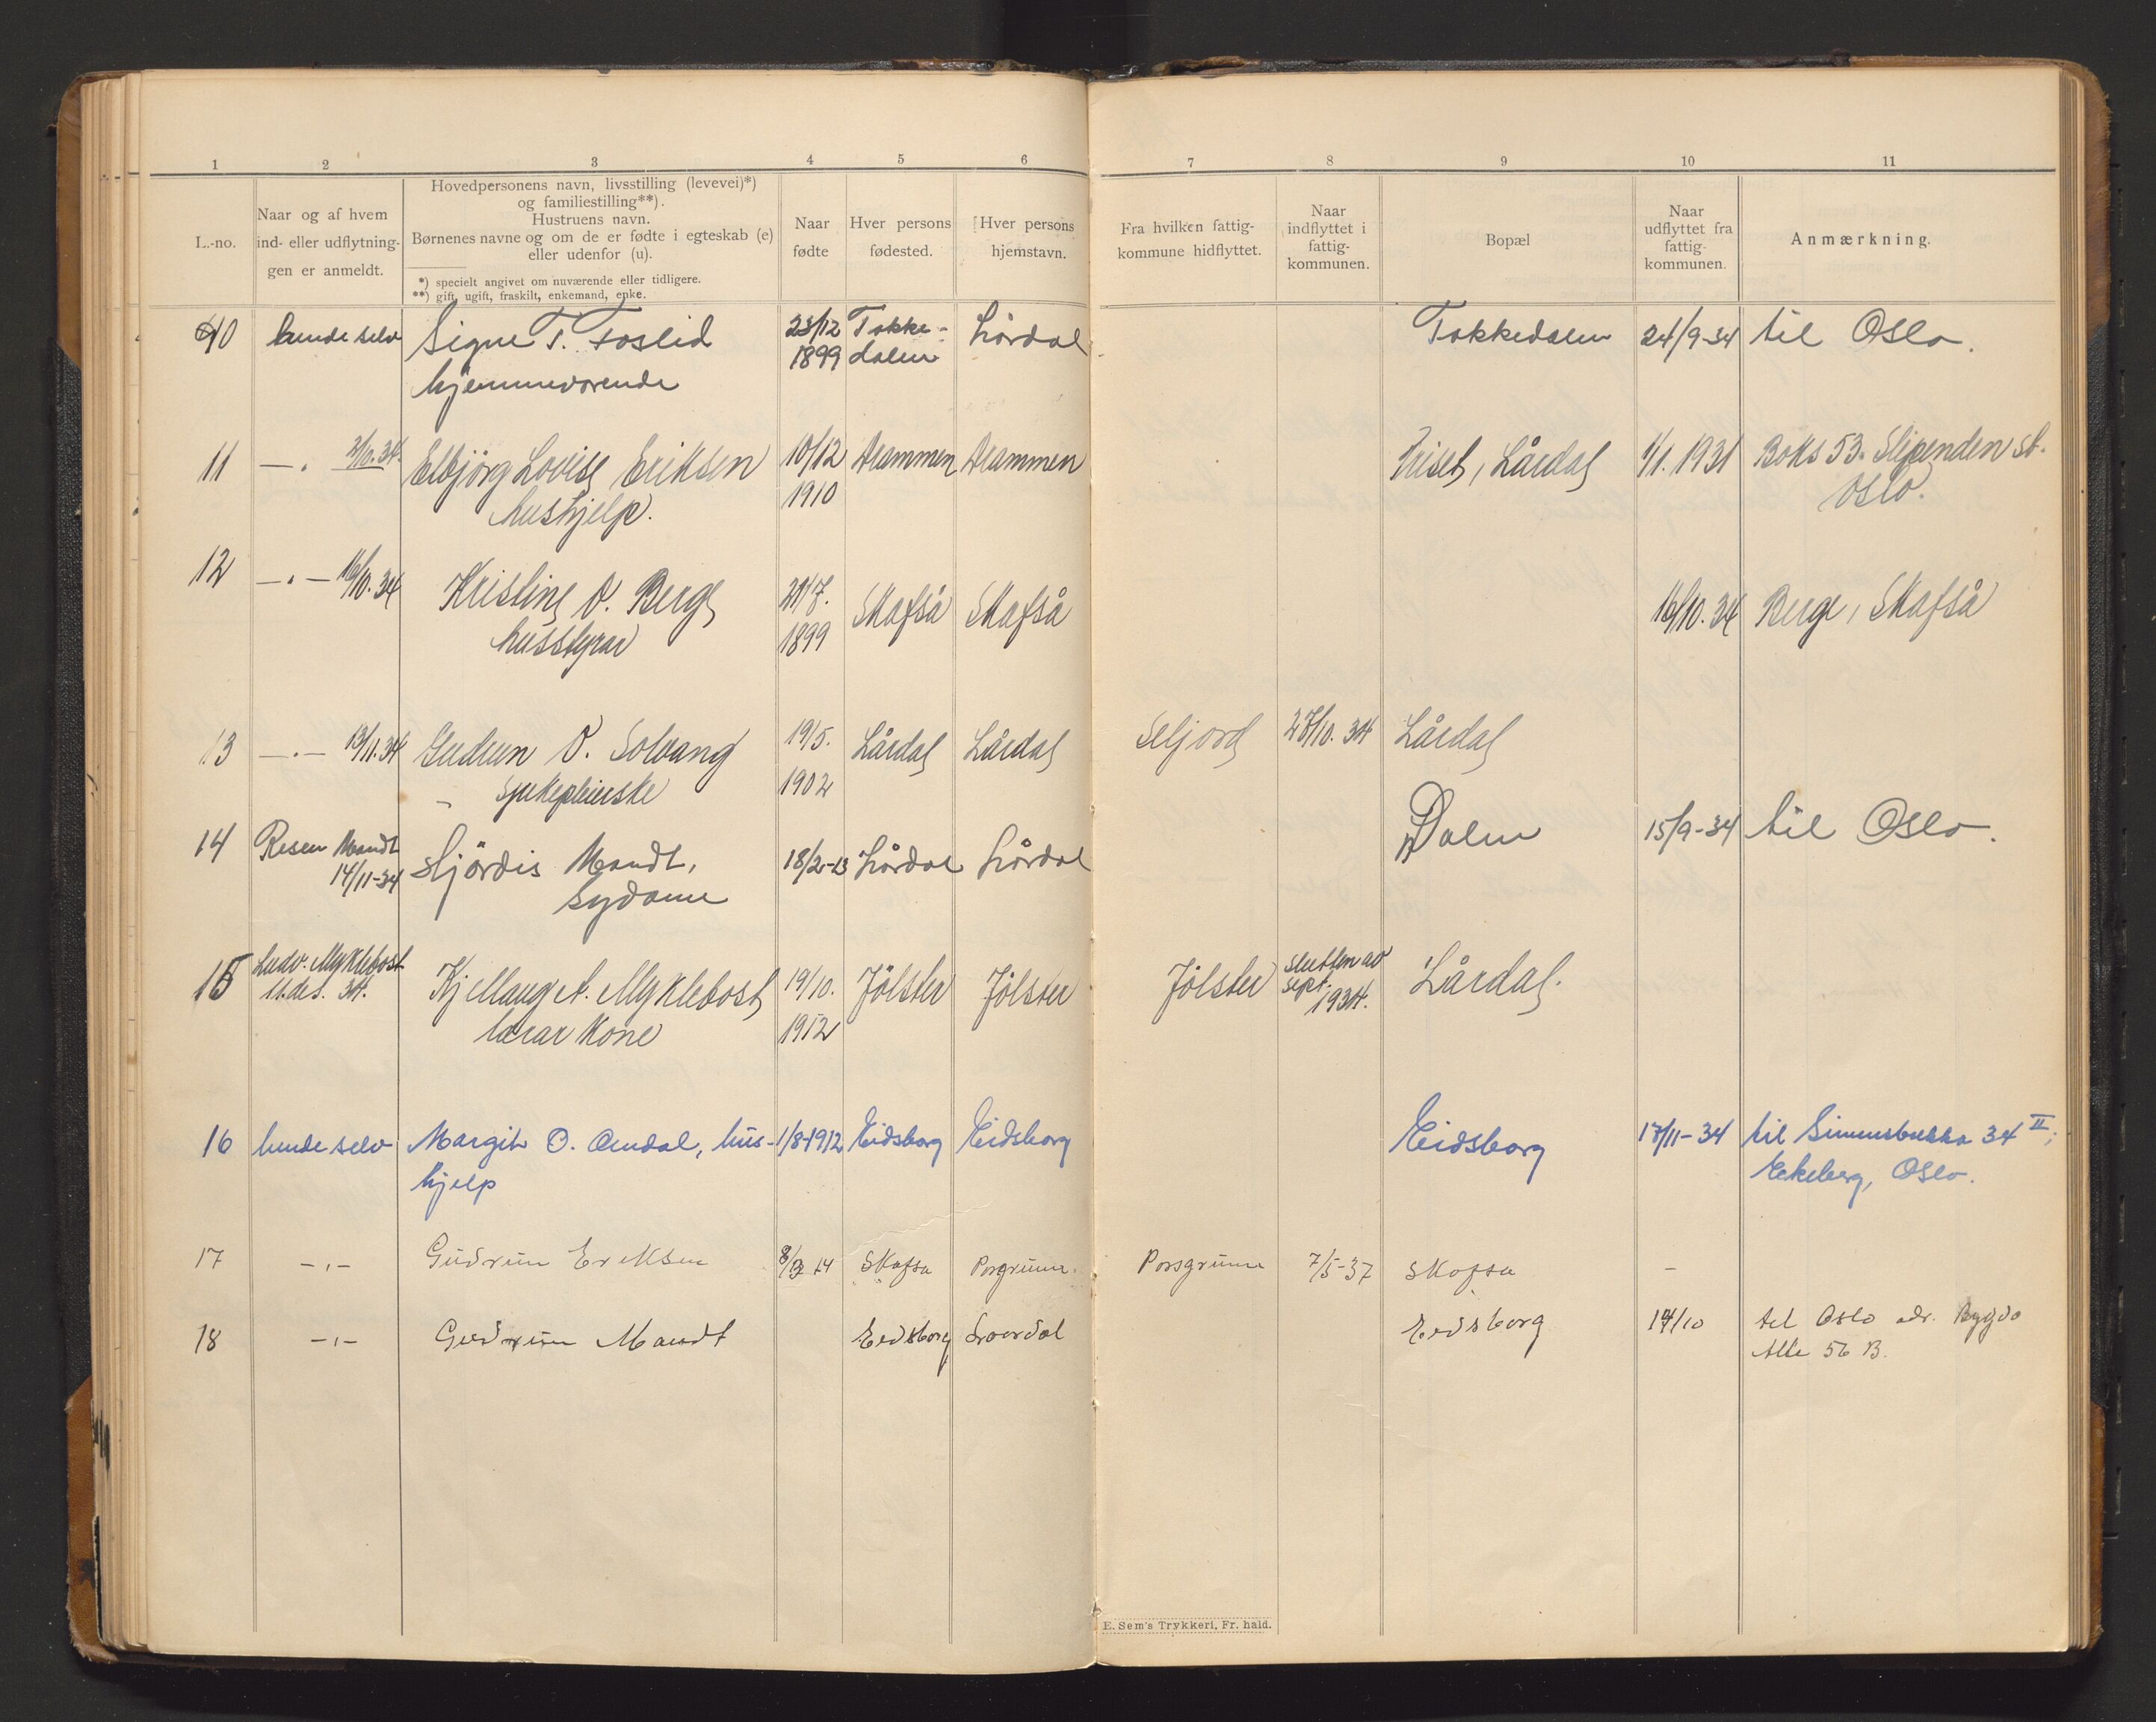 1 2 3 4 5 6 7 8 9 10 11
L.-no.
Naar og af hvem
ind- eller udflytnin-
gen er anmeldt.
Hovedpersonens navn, livsstilling (levevei)*)
og familiestilling**).
Hustruens navn.
Børnenes navne og om de er fødte i egteskab (e)
eller udenfor (u).
*) specielt angivet om nuværende eller tidligere.
**) gift, ugift, fraskilt, enkemand, enke.
Naar
fødte
Hver persons
fødested.
Hver persons
hjemstavn.
Fra hvilken fattig-
kommune hidflyttet.
Naar
indflyttet i
fattig-
kommunen.
Bopæl
Naar
udflyttet fra
fattig-
kommunen.
Anmærkning.
10 hende selv Signe T. Foslid 23/12 Tokke- Lårdal Tokkedalen 24/9-34 til Oslo.
hjemmeværende 1899 dalen
11 — . 2/10.34. Elbjörg Lovise Eriksen 10/12 Drammen Drammen Triset, Lårdal 1/1.1931 Boks 53. Slipenden st.
hushjelp. 1910 Oslo.
12 — . — 16/10.34 Kristine O. Berge 21/7. Skafså Skafså 16/10.34 Berge, Skafså
husstyrar 1899
13 — . — 13/11.34 Gudrun O. Solvang 19/5. Lårdal Lårdal Seljord 27/10.34 Lårdal
Sjukepleierske 1902
14 Resen Mandt Hjördis Mandt, 18/2-13 Lårdal Lårdal Dalen 15/9-34 til Oslo.
14/11-34 Sydame
15 Ludv. Myklebost Kjellaug A. Myklebost 19/10. Jölster Jölster Jölster slutten av Lårdal.
11.des. 34. lærar kone 1912 sept. 1934.
16 hende selv Margit O. Omdal, hus- 1/8-1912 Eidsborg Eidsborg Eidsborg 17/11-34 til Simensbråkka 34 II;
hjelp Ekeberg, Oslo.
17 — , — Gudrun Eriksen 14 Skafsa Porsgrunn. Porsgrunn 7/5-37 Skafsa –
18 — , — Gudrun Mandt Eidsborg Laardal Eidsborg 14/10 til Oslo adr. Bygdø
Alle 56 B.
E. Sem's Trykkeri, Fr. hald.